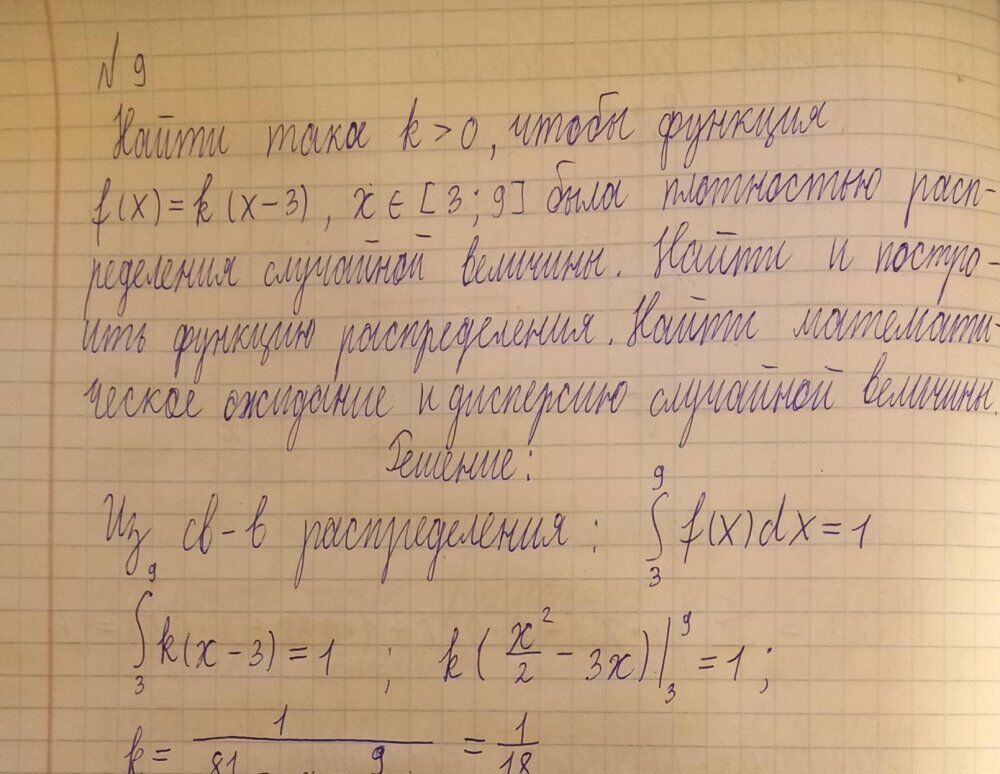 № 9
Найти такое k > 0, чтобы функция
f(x) = k(x-3), x ∈ [3; 9] была плотностью расп-
ределения случайной величины. Найти и постро-
ить функцию распределения. Найти математи
ческое ожидание и дисперсию случайной величины.
Решение:
Из св-в распределения: ∫₃⁹ f(x)dx = 1
∫₃⁹ k(x-3) = 1 ; k(x²/2 - 3x)|₃⁹ = 1;
k = 1/(81 9) = 1/18